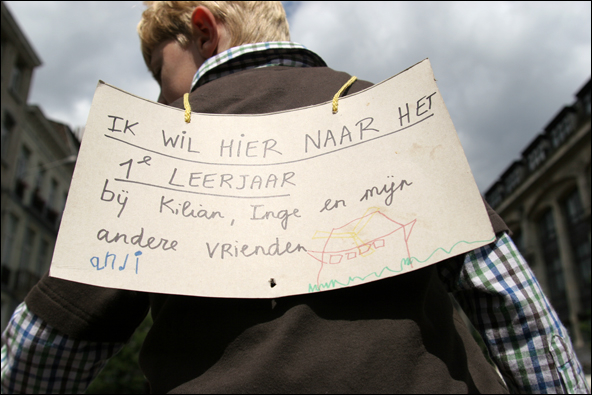 IK WIL HIER NAAR HET
1e LEERJAAR
bij Kilian, Inge en mijn
andere vrienden
anji